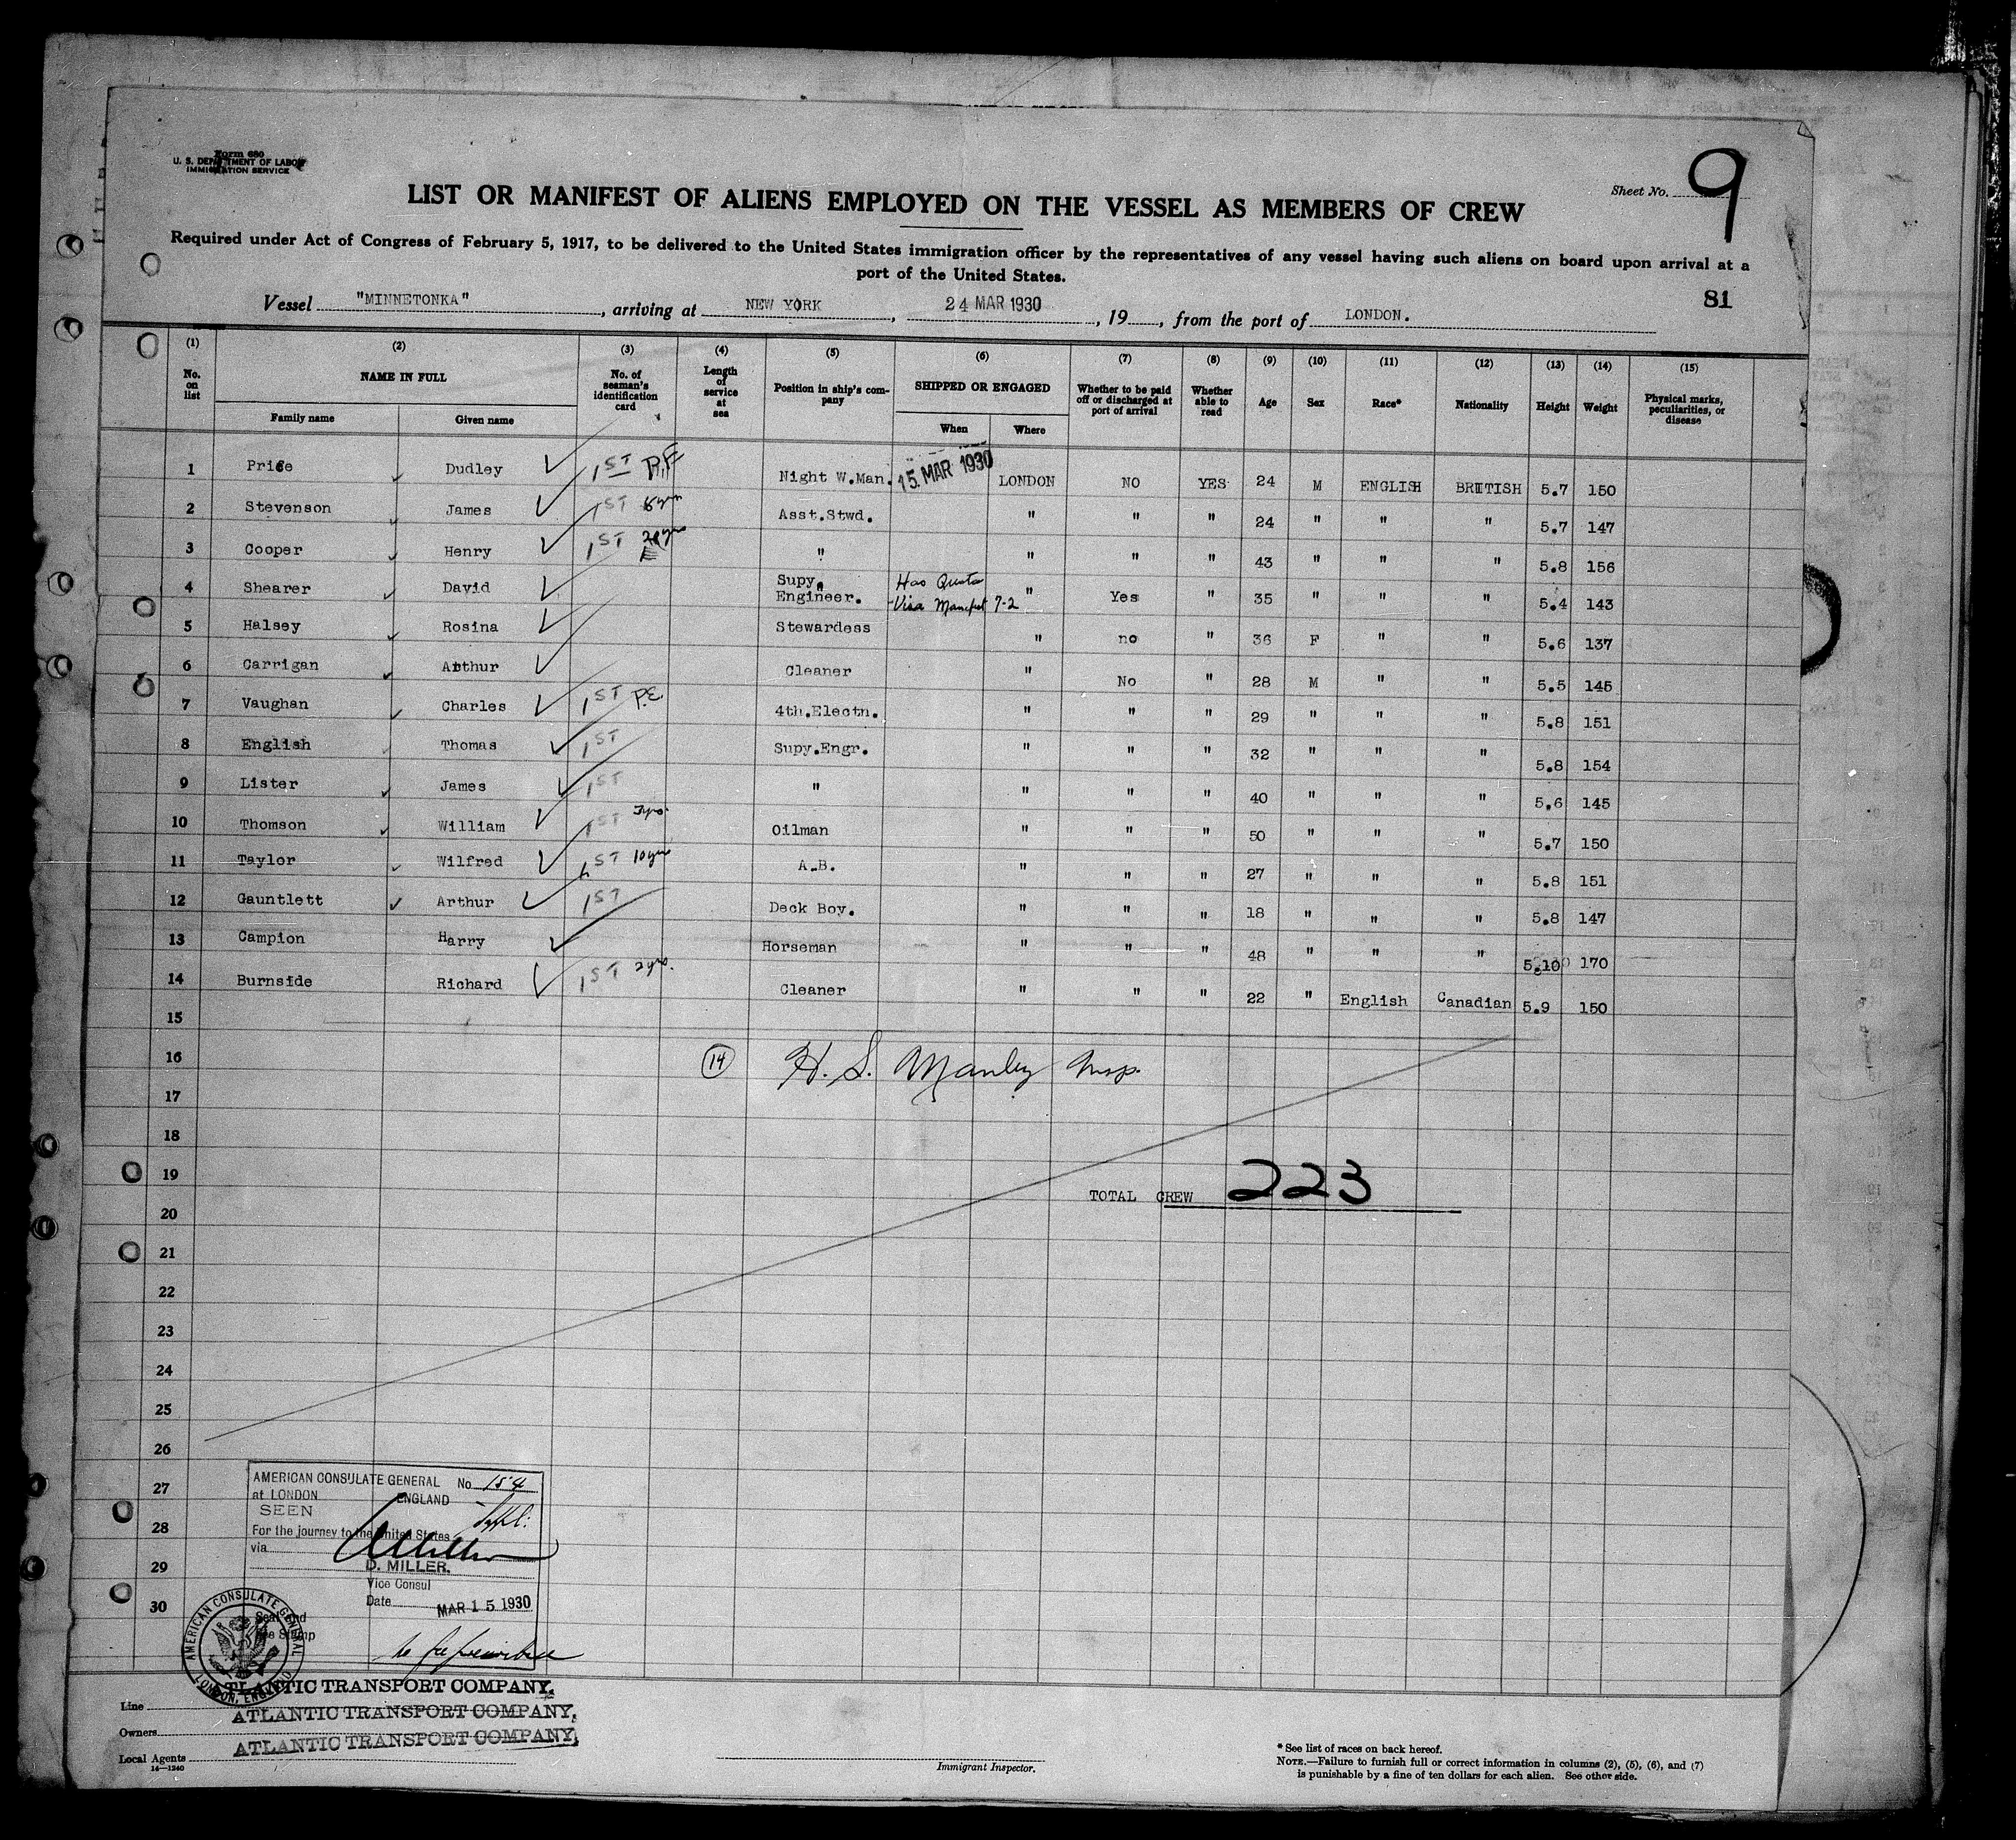 Form 680
U. S. DEPARTMENT OF LABOR
IMMIGRATION SERVICE
Sheet No. 9
LIST OR MANIFEST OF ALIENS EMPLOYED ON THE VESSEL AS MEMBERS OF CREW
Required under Act of Congress of February 5, 1917, to be delivered to the United States immigration officer by the representatives of any vessel having such aliens on board upon arrival at a
port of the United States.
81
Vessel "MINNETONKA", arriving at NEW YORK, 24 MAR 1930, 19, from the port of LONDON.
(1) (2) (3) (4) (5) (6) (7) (8) (9) (10) (11) (12) (13) (14) (15)
No. on list NAME IN FULL No. of seaman's identification card Length of service at sea Position in ship's company SHIPPED OR ENGAGED Whether to be paid off or discharged at port of arrival Whether able to read Age Sex Race* Nationality Height Weight Physical marks, peculiarities, or disease
Family name Given name When Where
1 Price Dudley 1ST Night W.Man. 15 MAR 1930 LONDON NO YES 24 M ENGLISH BRITISH 5.7 150
2 Stevenson James 1ST Asst.Stwd. " " " 24 " " " 5.7 147
3 Cooper Henry 1ST " " " " 43 " " " 5.8 156
4 Shearer David Supy. Engineer. Has Quota Visa Manifest 7-2 " Yes " 35 " " " 5.4 143
5 Halsey Rosina Stewardess " no " 36 F " " 5.6 137
6 Carrigan Arthur Cleaner " No " 28 M " " 5.5 145
7 Vaughan Charles 1ST P.E. 4th.Electn. " " " 29 " " " 5.8 151
8 English Thomas 1ST Supy.Engr. " " " 32 " " " 5.8 154
9 Lister James 1ST " " " " 40 " " " 5.6 145
10 Thomson William 1ST 3yrs. Oilman " " " 50 " " " 5.7 150
11 Taylor Wilfred 1ST 10yrs A.B. " " " 27 " " " 5.8 151
12 Gauntlett Arthur 1ST Deck Boy. " " " 18 " " " 5.8 147
13 Campion Harry Horseman " " " 48 " " " 5.10 170
14 Burnside Richard 1ST 2yrs. Cleaner " " " 22 " English Canadian 5.9 150
15
16 14 H. S. Manley Insp.
17
18
19
TOTAL CREW 223
20
21
22
23
24
25
26
27
28
29
30
AMERICAN CONSULATE GENERAL No 154
at LONDON ENGLAND
SEEN
For the journey to the United States
via
D. MILLER.
Vice Consul
Date MAR 15 1930
Seal and
Fee Stamp
No fee prescribed
AMERICAN CONSULATE GENERAL
LONDON, ENGLAND
Line ATLANTIC TRANSPORT COMPANY.
Owners ATLANTIC TRANSPORT COMPANY.
Local Agents ATLANTIC TRANSPORT COMPANY.
14—1240
Immigrant Inspector.
* See list of races on back hereof.
NOTE.—Failure to furnish full or correct information in columns (2), (5), (6), and (7)
is punishable by a fine of ten dollars for each alien. See other side.